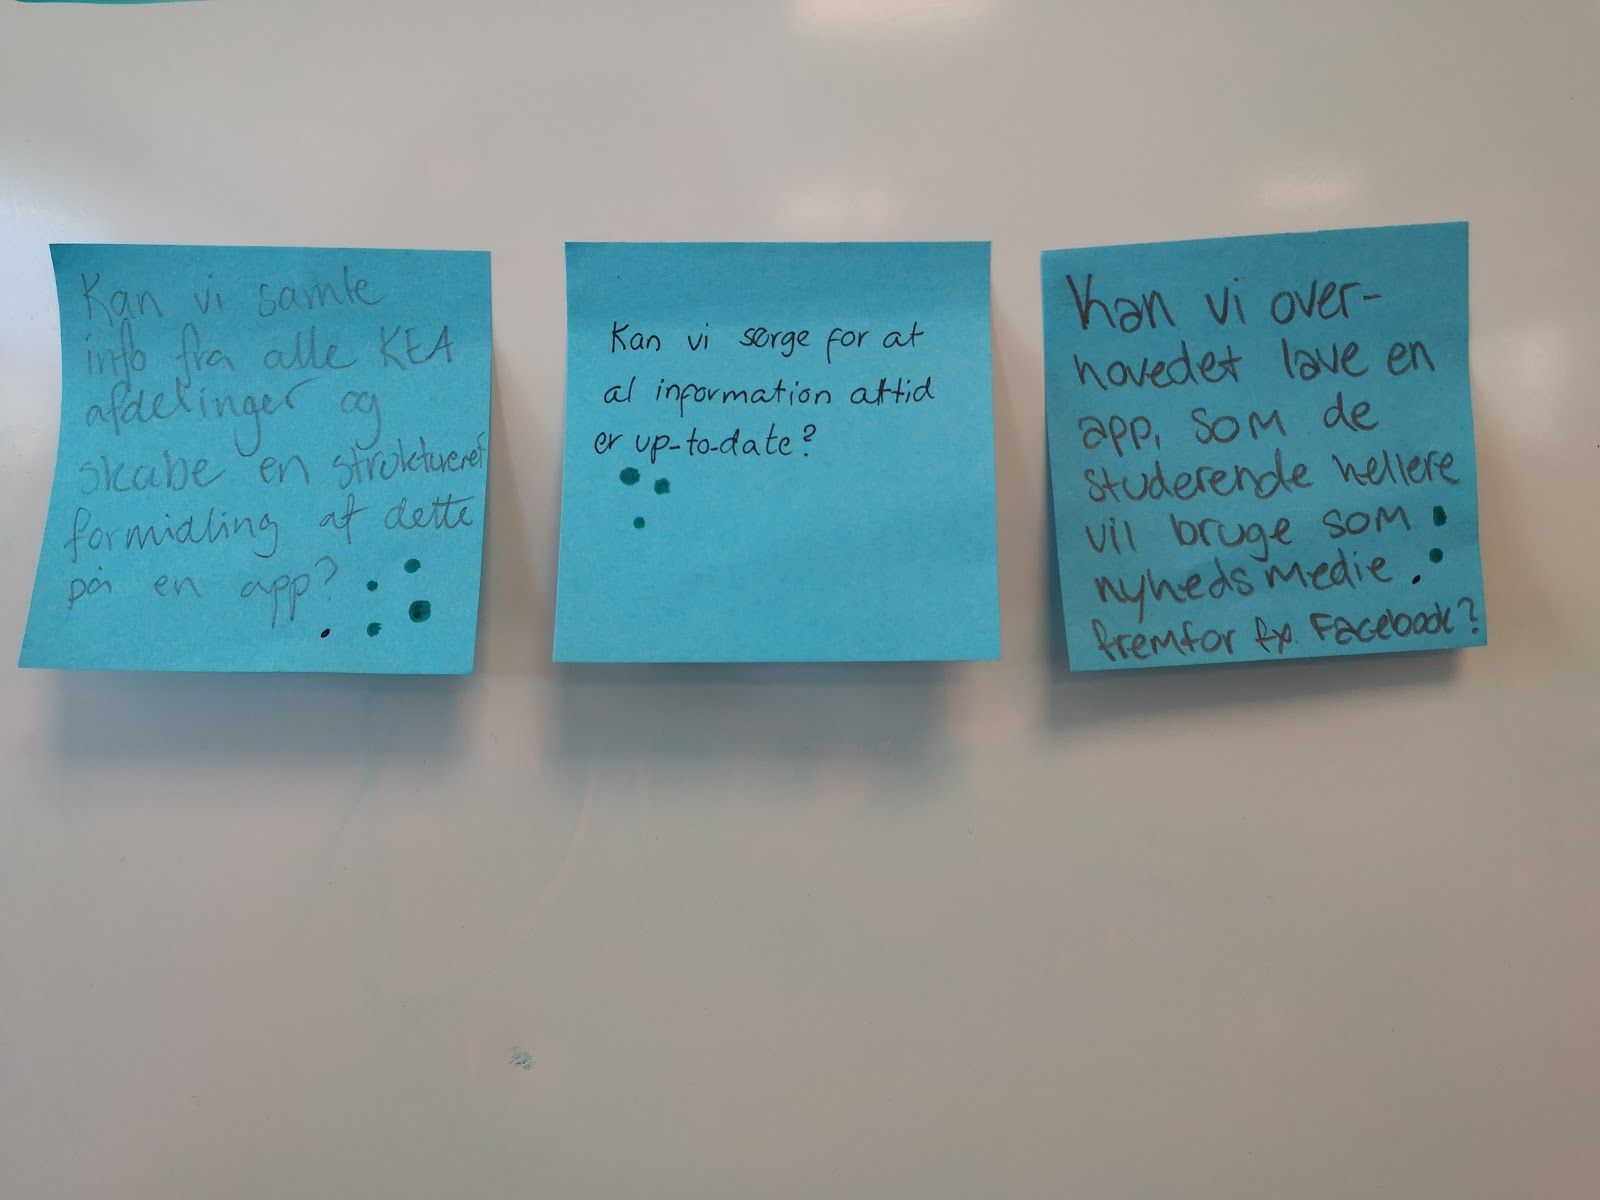 Kan vi samle
info fra alle KEA
afdelinger og
skabe en struktureret
formidling af dette
på en app?
Kan vi sørge for at
al information altid
er up-to-date?
Kan vi over-
hovedet lave en
app, som de
studerende hellere
vil bruge som
nyhedsmedie
fremfor fx. Facebook?